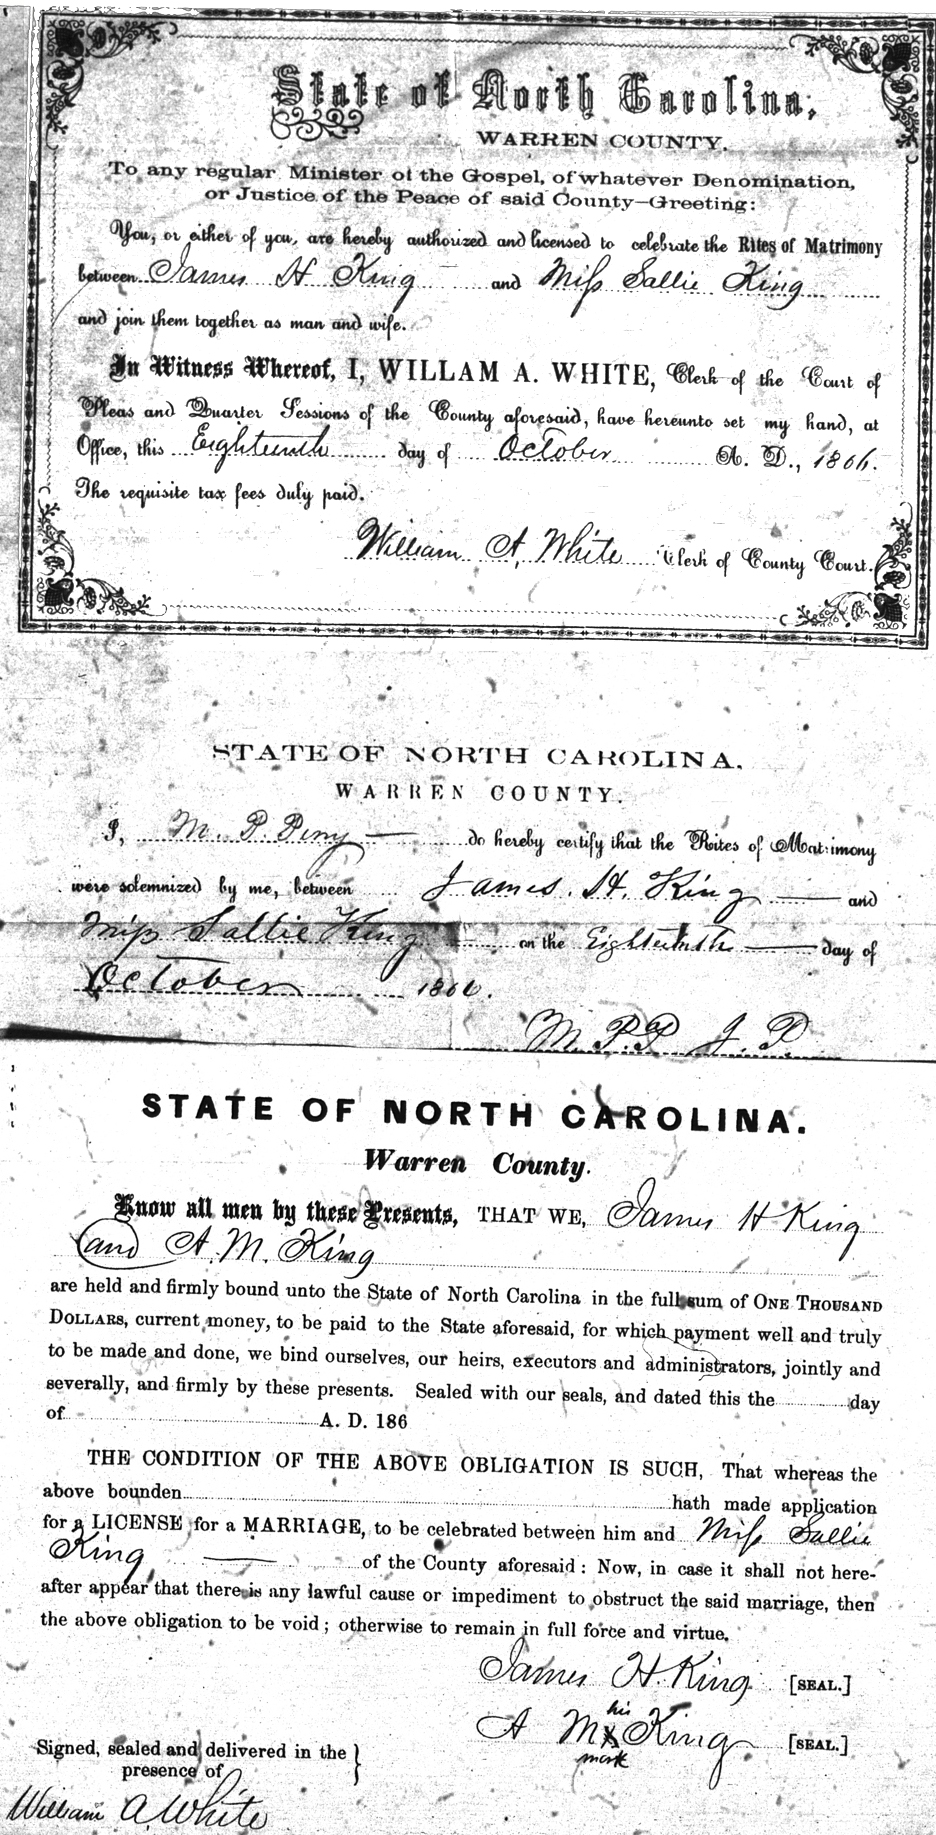 State of North Carolina,
WARREN COUNTY.
To any regular Minister of the Gospel, of whatever Denomination,
or Justice of the Peace of said County—Greeting:
You, or either of you, are hereby authorized and licensed to celebrate the Rites of Matrimony
between James H King and Miss Sallie King
and join them together as man and wife.
In Witness Whereof, I, WILLAM A. WHITE, Clerk of the Court of
Pleas and Quarter Sessions of the County aforesaid, have hereunto set my hand, at
Office, this Eighteenth day of October A. D., 1866.
The requisite tax fees duly paid.
William A, White Clerk of County Court.
STATE OF NORTH CAROLINA,
WARREN COUNTY.
I, M. P. Perry do hereby certify that the Rites of Matrimony
were solemnized by me, between James. H. King and
Miss Sallie King on the Eighteenth day of
October 1866.
M. P. P J. P.
STATE OF NORTH CAROLINA.
Warren County.
Know all men by these Presents, THAT WE, James H King
and A. M. King
are held and firmly bound unto the State of North Carolina in the full sum of ONE THOUSAND
DOLLARS, current money, to be paid to the State aforesaid, for which payment well and truly
to be made and done, we bind ourselves, our heirs, executors and administrators, jointly and
severally, and firmly by these presents. Sealed with our seals, and dated this the day
of A. D. 186
THE CONDITION OF THE ABOVE OBLIGATION IS SUCH, That whereas the
above bounden hath made application
for a LICENSE for a MARRIAGE, to be celebrated between him and Miss Sallie
King of the County aforesaid: Now, in case it shall not here-
after appear that there is any lawful cause or impediment to obstruct the said marriage, then
the above obligation to be void; otherwise to remain in full force and virtue.
James H. King [SEAL.]
his
A M X King [SEAL.]
mark
Signed, sealed and delivered in the }
presence of
William A. White